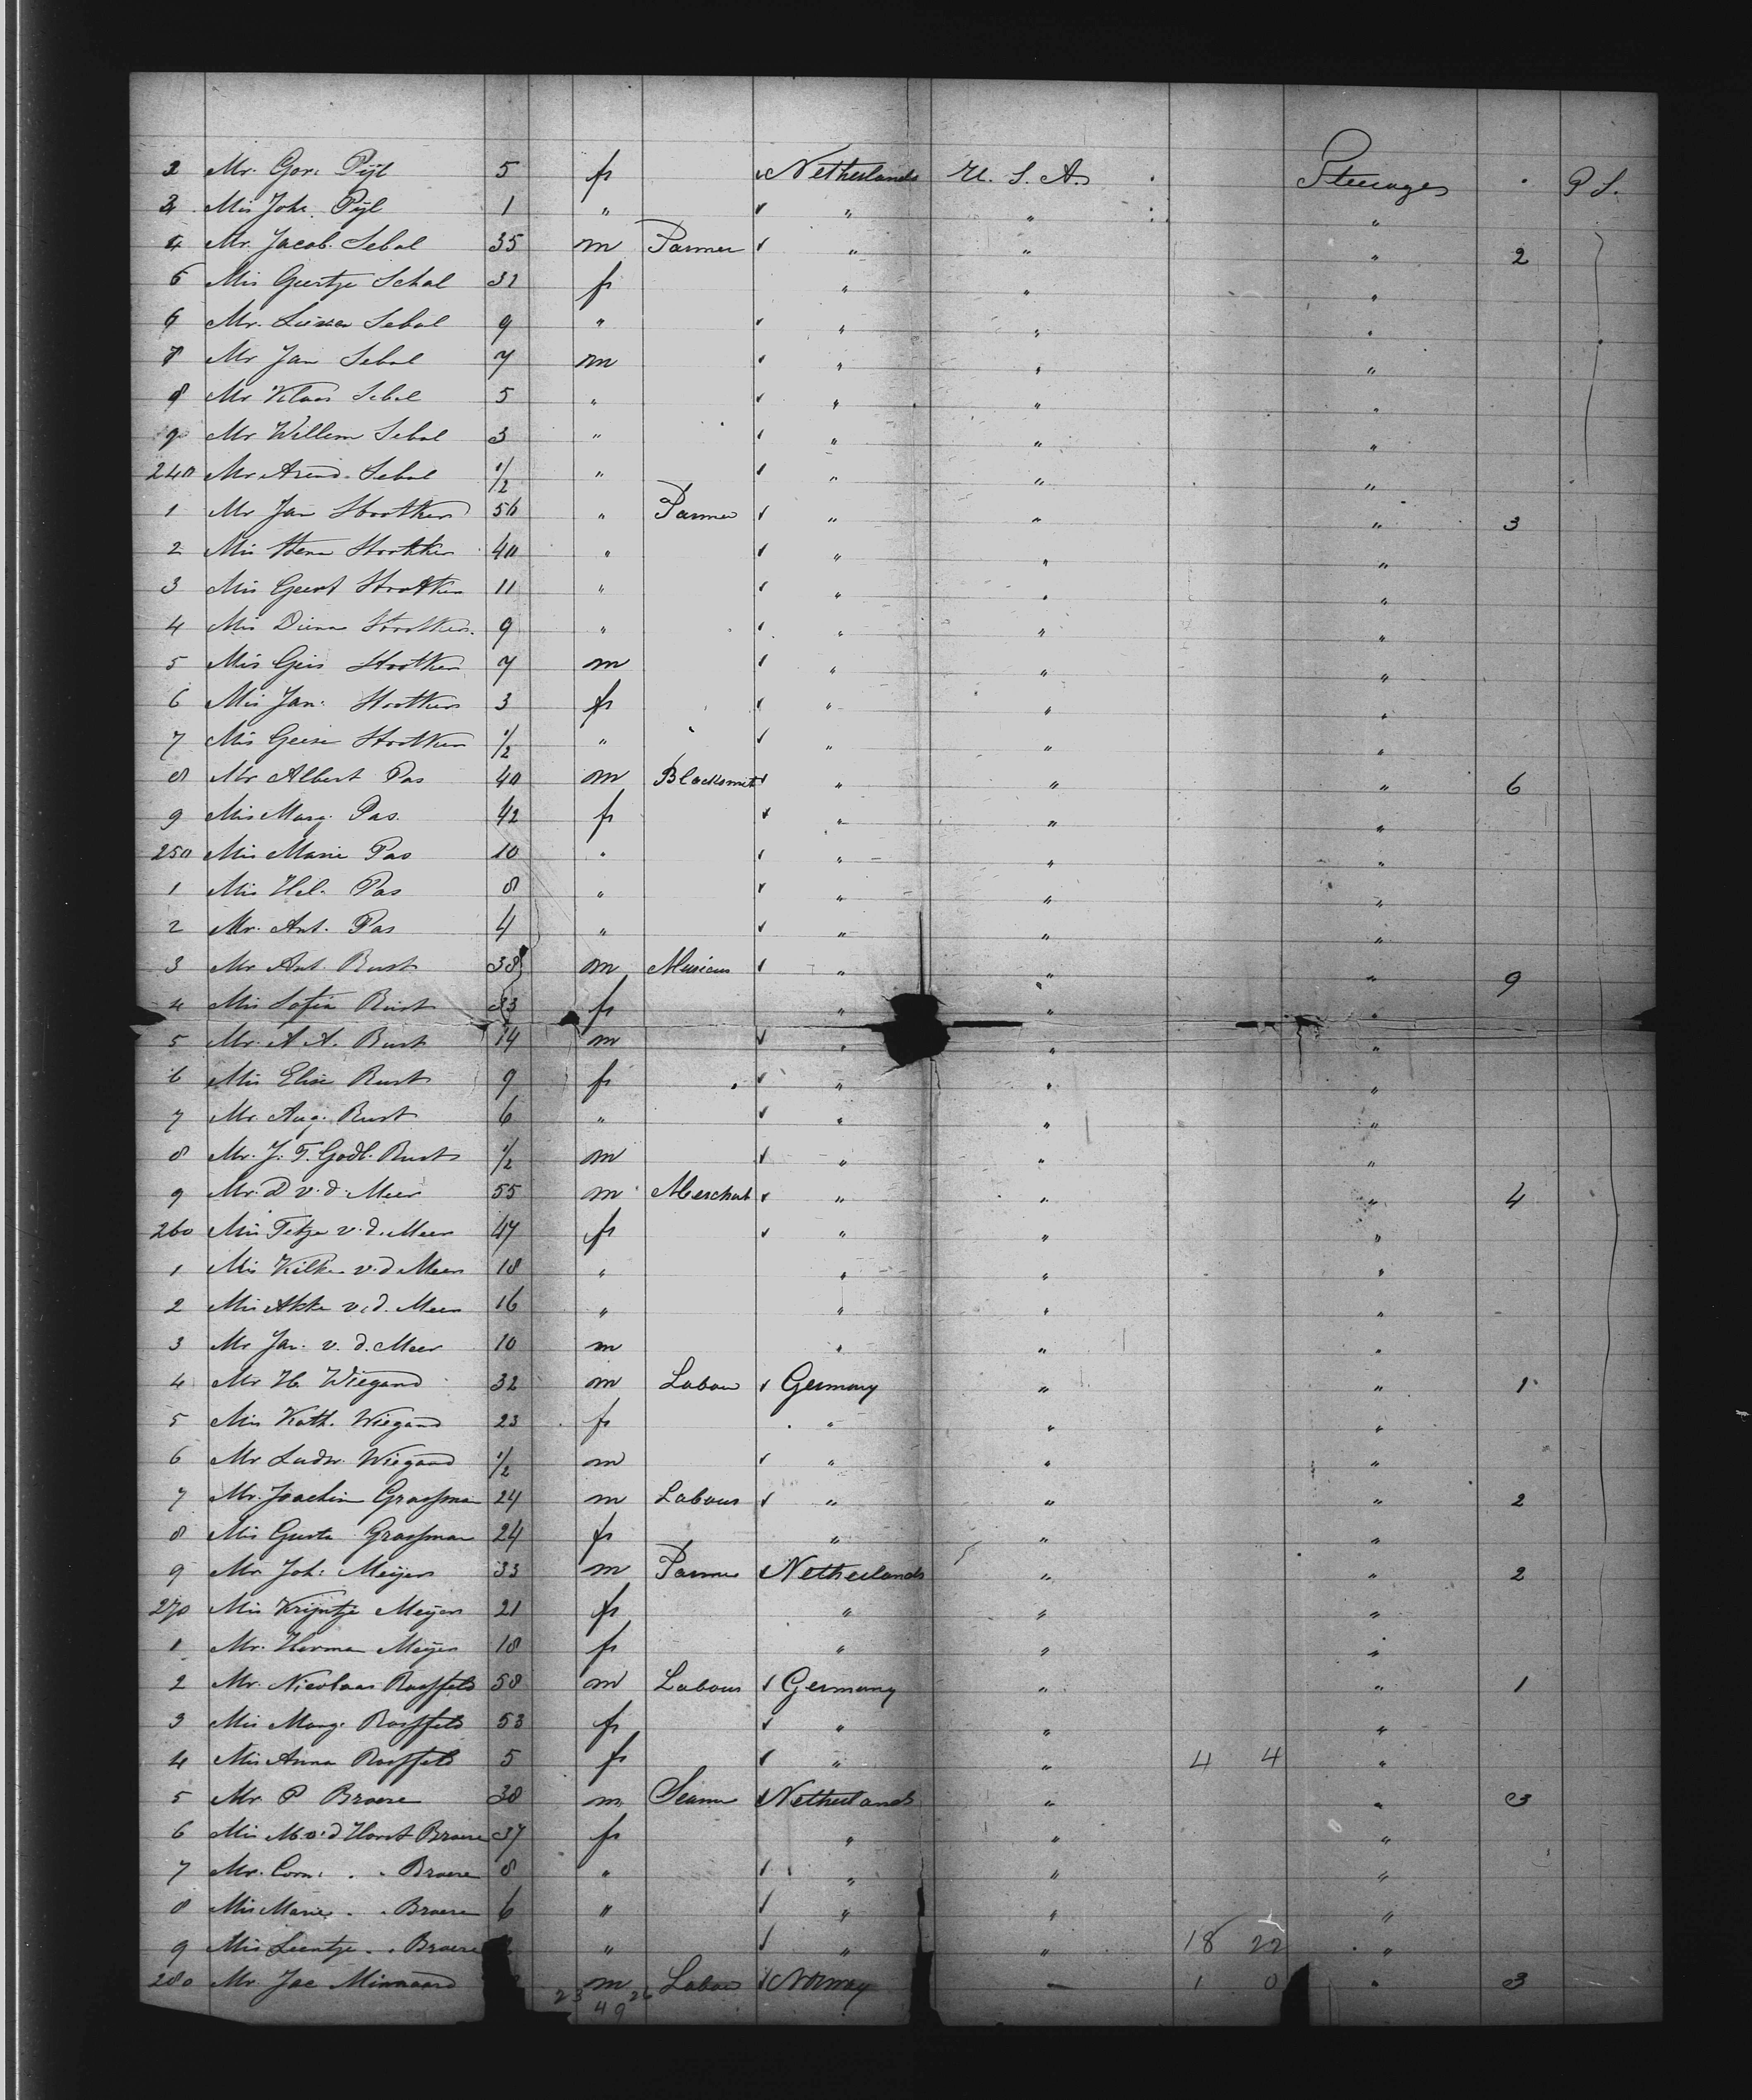 2 Mr. Gor. Pijl 5 fr Netherlands U. S. A. Steerages P S.
3 Mis Joh. Pijl 1 " " " "
4 Mr. Jacob Sebal 35 m Farmer " " " 2
5 Mis Geertje Schal 31 fr " " "
6 Mr. Sebal 9 " " " "
7 Mr Jan Sebal 7 m " " "
8 Mr Klaas Sebel 5 " " " "
9 Mr Willem Sebal 3 " " " "
240 Mr Arend Sebal 1/2 " " " "
1 Mr Jan Strotker 56 " Farmer " " " 3
2 Mis Strotker 40 " " " "
3 Mis Geert Strotker 11 " " " "
4 Mis Diena Strotker 9 " " " "
5 Mis Geis Strotker 7 m " " "
6 Mis Jan: Strotker 3 fr " " "
7 Mis Geese Strotker 1/2 " " " "
8 Mr Albert Pas 40 m Blacksmit " " " 6
9 Mis Marg. Pas. 42 fr " " "
250 Mis Marie Pas 10 " " " "
1 Mis Hel. Pas 8 " " " "
2 Mr. Ant. Pas 4 " " " "
3 Mr Ant. Rust 38 m Musicus " " " 9
4 Mis Sofia Rust 33 fr " " "
5 Mr. A A. Rust 14 m " " "
6 Mis Elise Rust 9 fr " " "
7 Mr. Aug. Rust 6 " " " "
8 Mr. J. F. Godl. Rust 1/2 m " " "
9 Mr. D v. d. Meer 55 m Merchant " " " 4
260 Mis Tetje v. d. Meer 47 fr " " "
1 Mis v. d Meer 18 " " " "
2 Mis Akke v. d. Meer 16 " " " "
3 Mr Jan. v. d. Meer 10 m " " "
4 Mr H. Wiegand 32 m Labour Germany " " 1
5 Mis Kath. Wiegand 23 fr " " "
6 Mr Ludw. Wiegand 1/2 m " " "
7 Mr. Joachim Grassman 24 m Labour " " " 2
8 Mis Gusta Grassman 24 fr " " "
9 Mr. Joh: Meijers 33 m Farmer Netherlands " " 2
270 Mis Krijntje Meijers 21 fr " " "
1 Mr. Herman Meijer 18 fr " " "
2 Mr. Nicolaas Rassfeld 58 m Labour Germany " " 1
3 Mis Marg. Rassfeld 53 fr " " "
4 Mis Anna Rassfeld 5 fr " " 4 4 "
5 Mr P Broere 38 m Netherlands " " 3
6 Mis M v. d Horst Broere 37 fr " " "
7 Mr. Corn: " " Broere 8 " " " "
8 Mis Marie " " Broere 6 " " " "
9 Mis Leentje " " Broere " " " 18 22 "
280 Mr. Jac Minnaard m Labour Norway 1 0 " 3
23 26
49